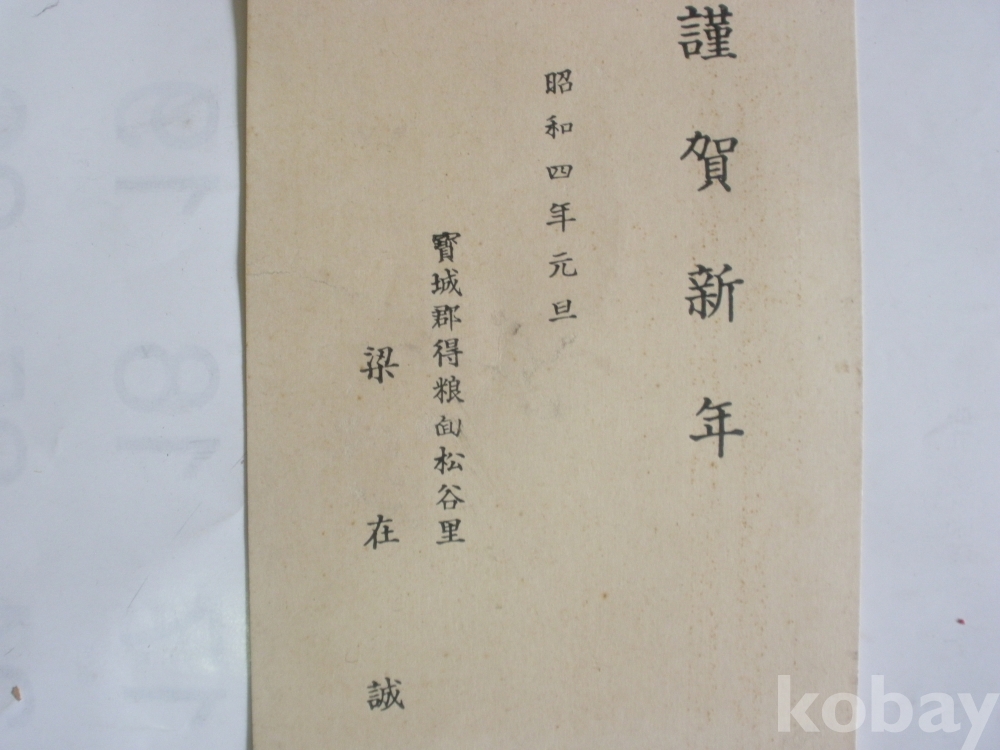 謹賀新年
昭和四年元旦
寳城郡得粮面松谷里
梁在誠
kobay